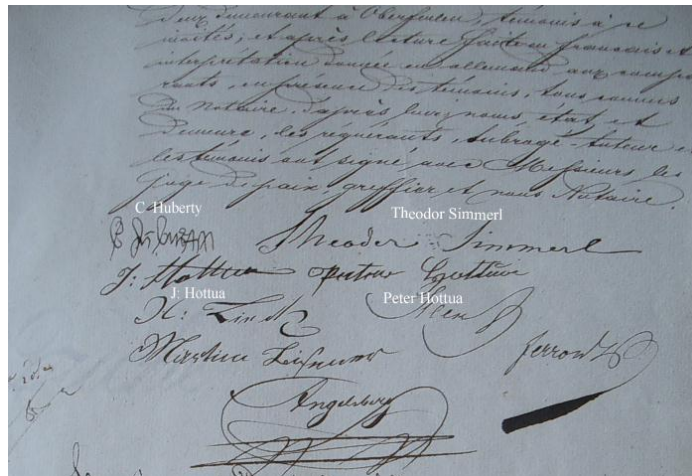 deux demeurant à Oberfeulen, témoins à ce
invités, et après lecture faite en français et
interprétation donnée en allemand aux compa-
rants, en présence des témoins, tous connus
du Notaire, d'après leurs noms, état et
demeure, les requérants, subrogé-tuteur e
les témoins ont signé avec Messieurs les
Juge de paix, greffier et nous Notaire.
C. Huberty Theodor Simmerl
Theodor Simmerl
J: Hottua Peter Hottua
J: Hottua Peter Hottua
Angelsberg